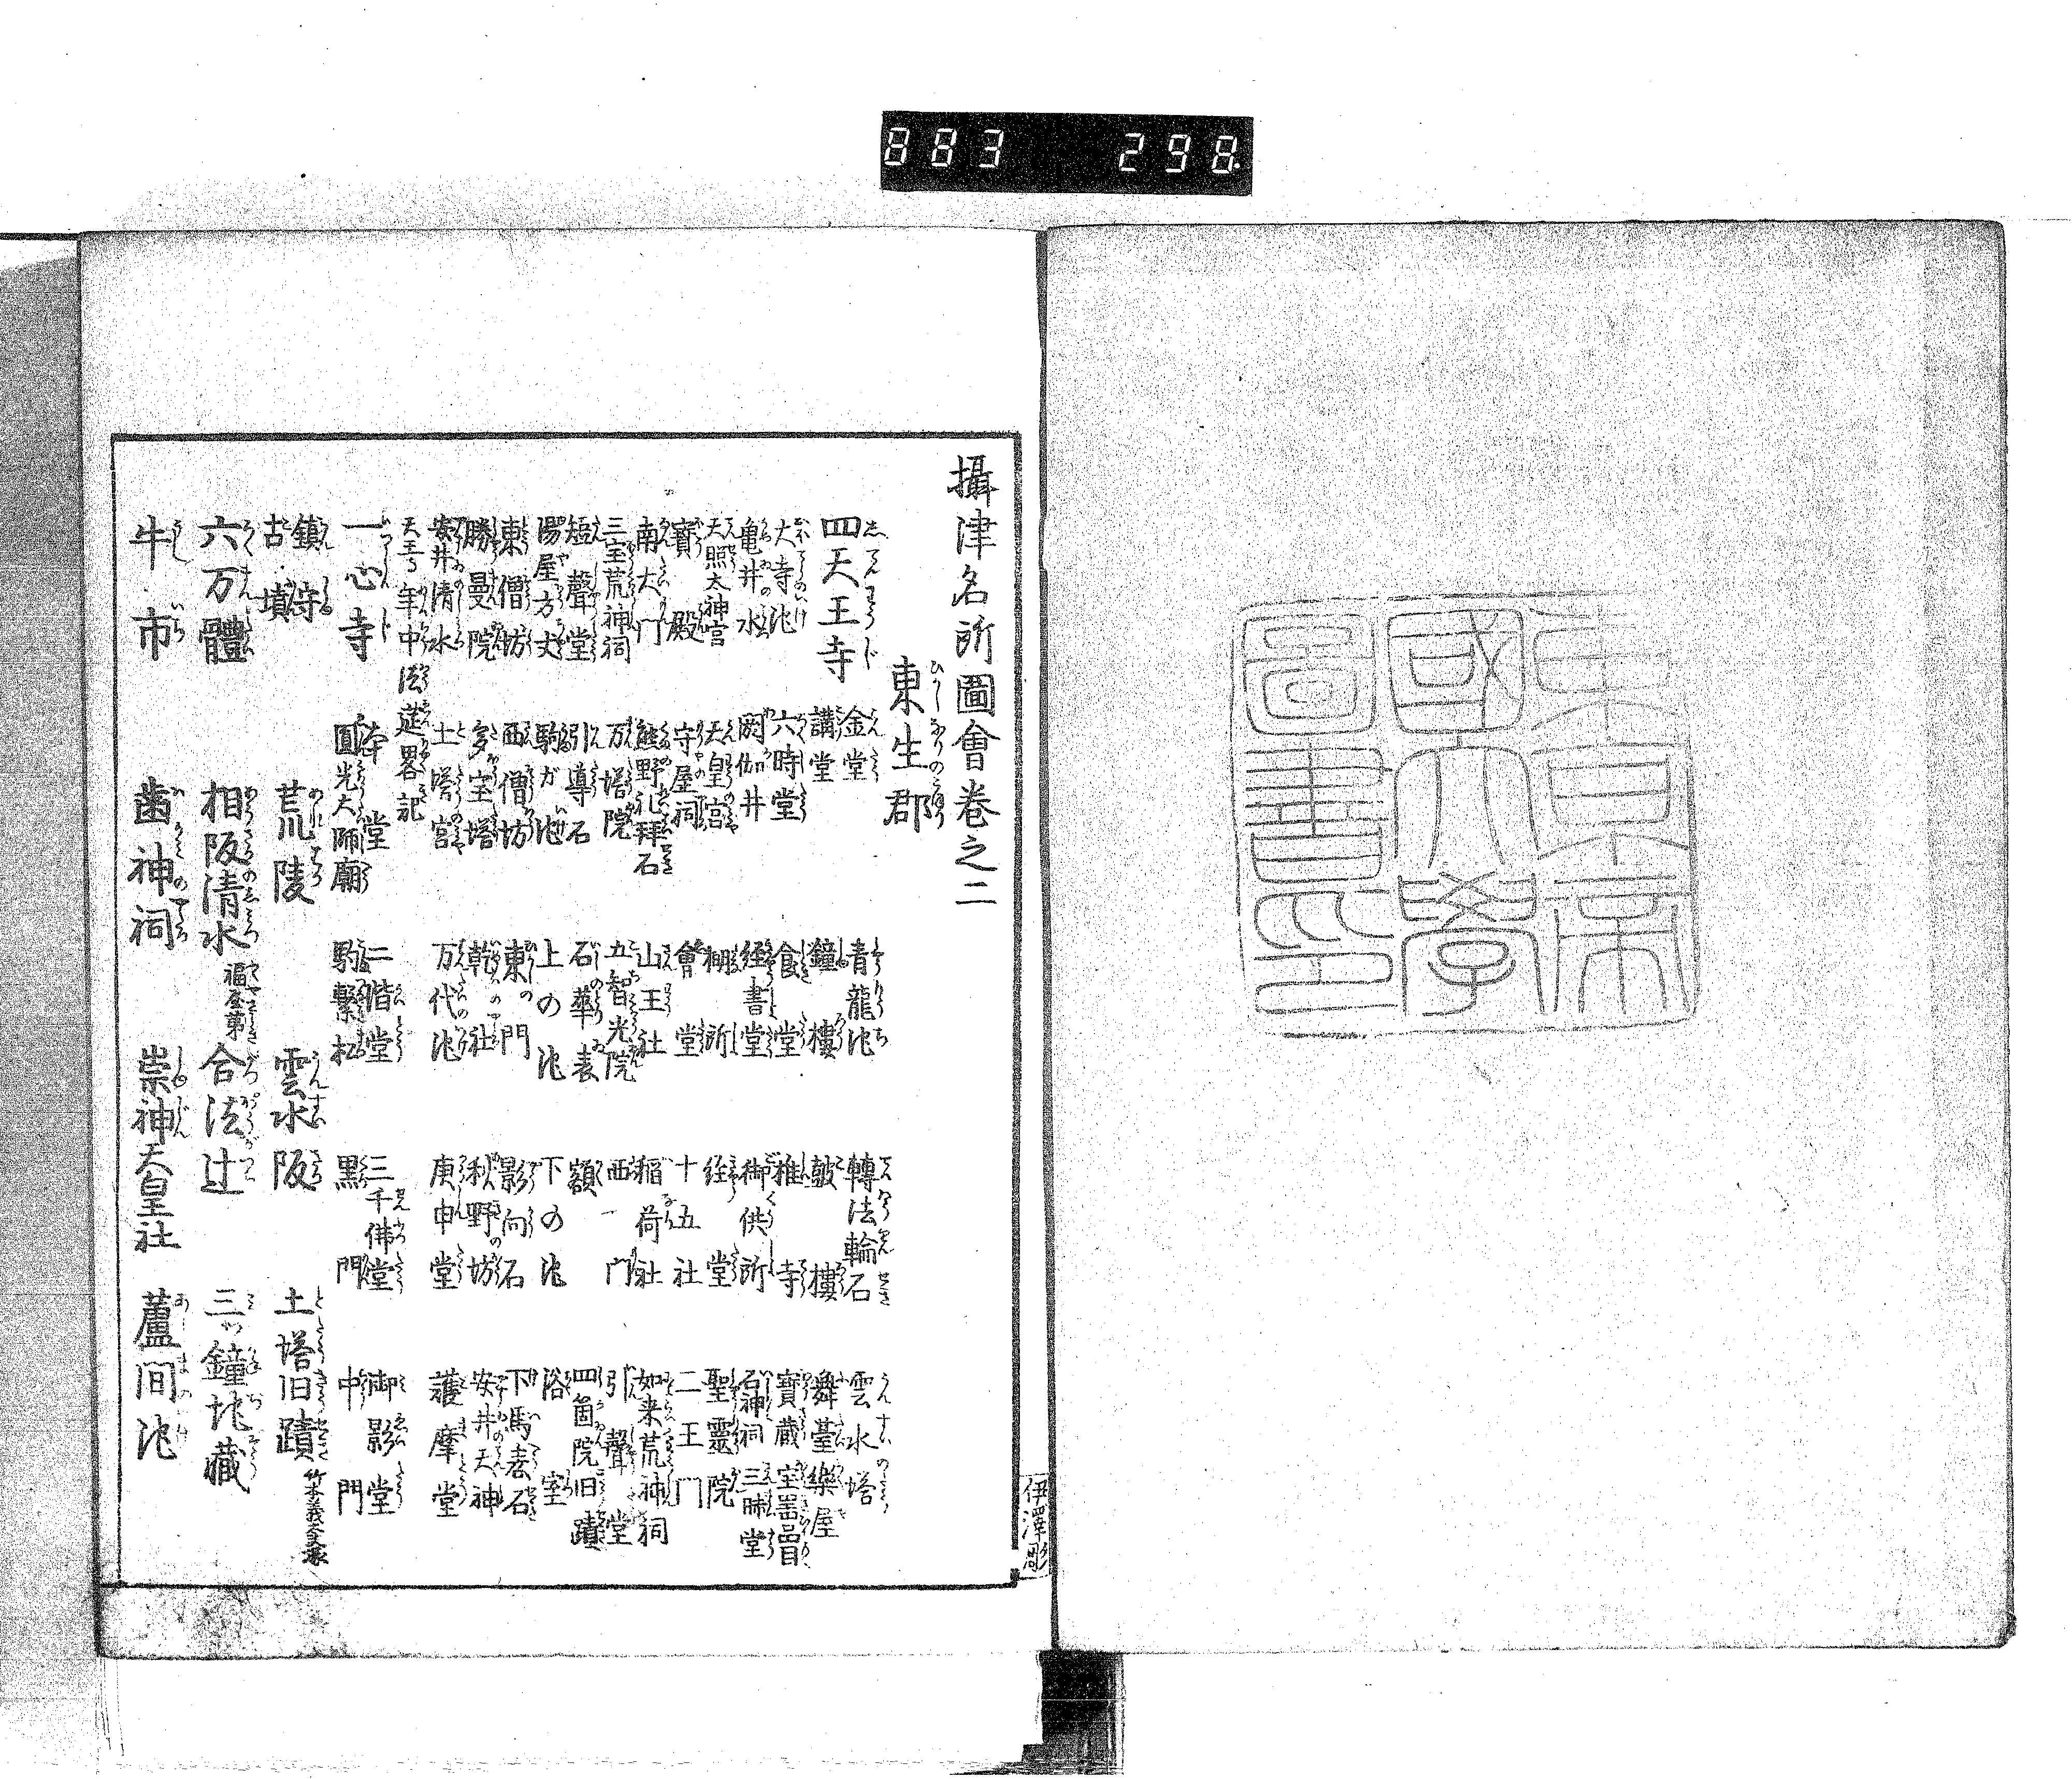 883 298
東京帝
國大學
圖書印
攝津名所圖會卷之二
東生郡
四天王寺 金堂 青龍池 轉法輪石 雲水塔
講堂 鐘樓 皷樓 舞臺樂屋
大寺池 六時堂 食堂 椎寺 寳蔵
亀井水 閼伽井 経書堂 御供所 石神祠 三昧堂
天照太神宮 天皇宮 糊所 経堂 聖靈院
寳殿 守屋祠 會堂 十五社 二王門
南大門 熊野礼拜石 山王社 稲荷社 如来荒神祠
三宝荒神祠 万塔院 五智光院 西門 引聲堂
短聲堂 引導石 石華表 額 四箇院旧蹟
湯屋方丈 駒が池 上の池 下の池 浴室
東僧坊 西僧坊 東の門 影向石 下馬表石
勝曼院 多宝塔 乾の社 秋野坊 安井天神
安井清水 土塔宮 万代池 庚申堂 護摩堂
天王寺年中法莚畧記
一心寺 本堂 二階堂 三千佛堂 御影堂
圓光大師廟 駒繋松 黒門 中門
鎮守
古墳 荒陵 雲水阪 土塔旧蹟
六万體 相阪清水 福屋第 合法辻 三鐘地藏
牛市 歯神祠 崇神天皇社 蘆間池
伊澤彫